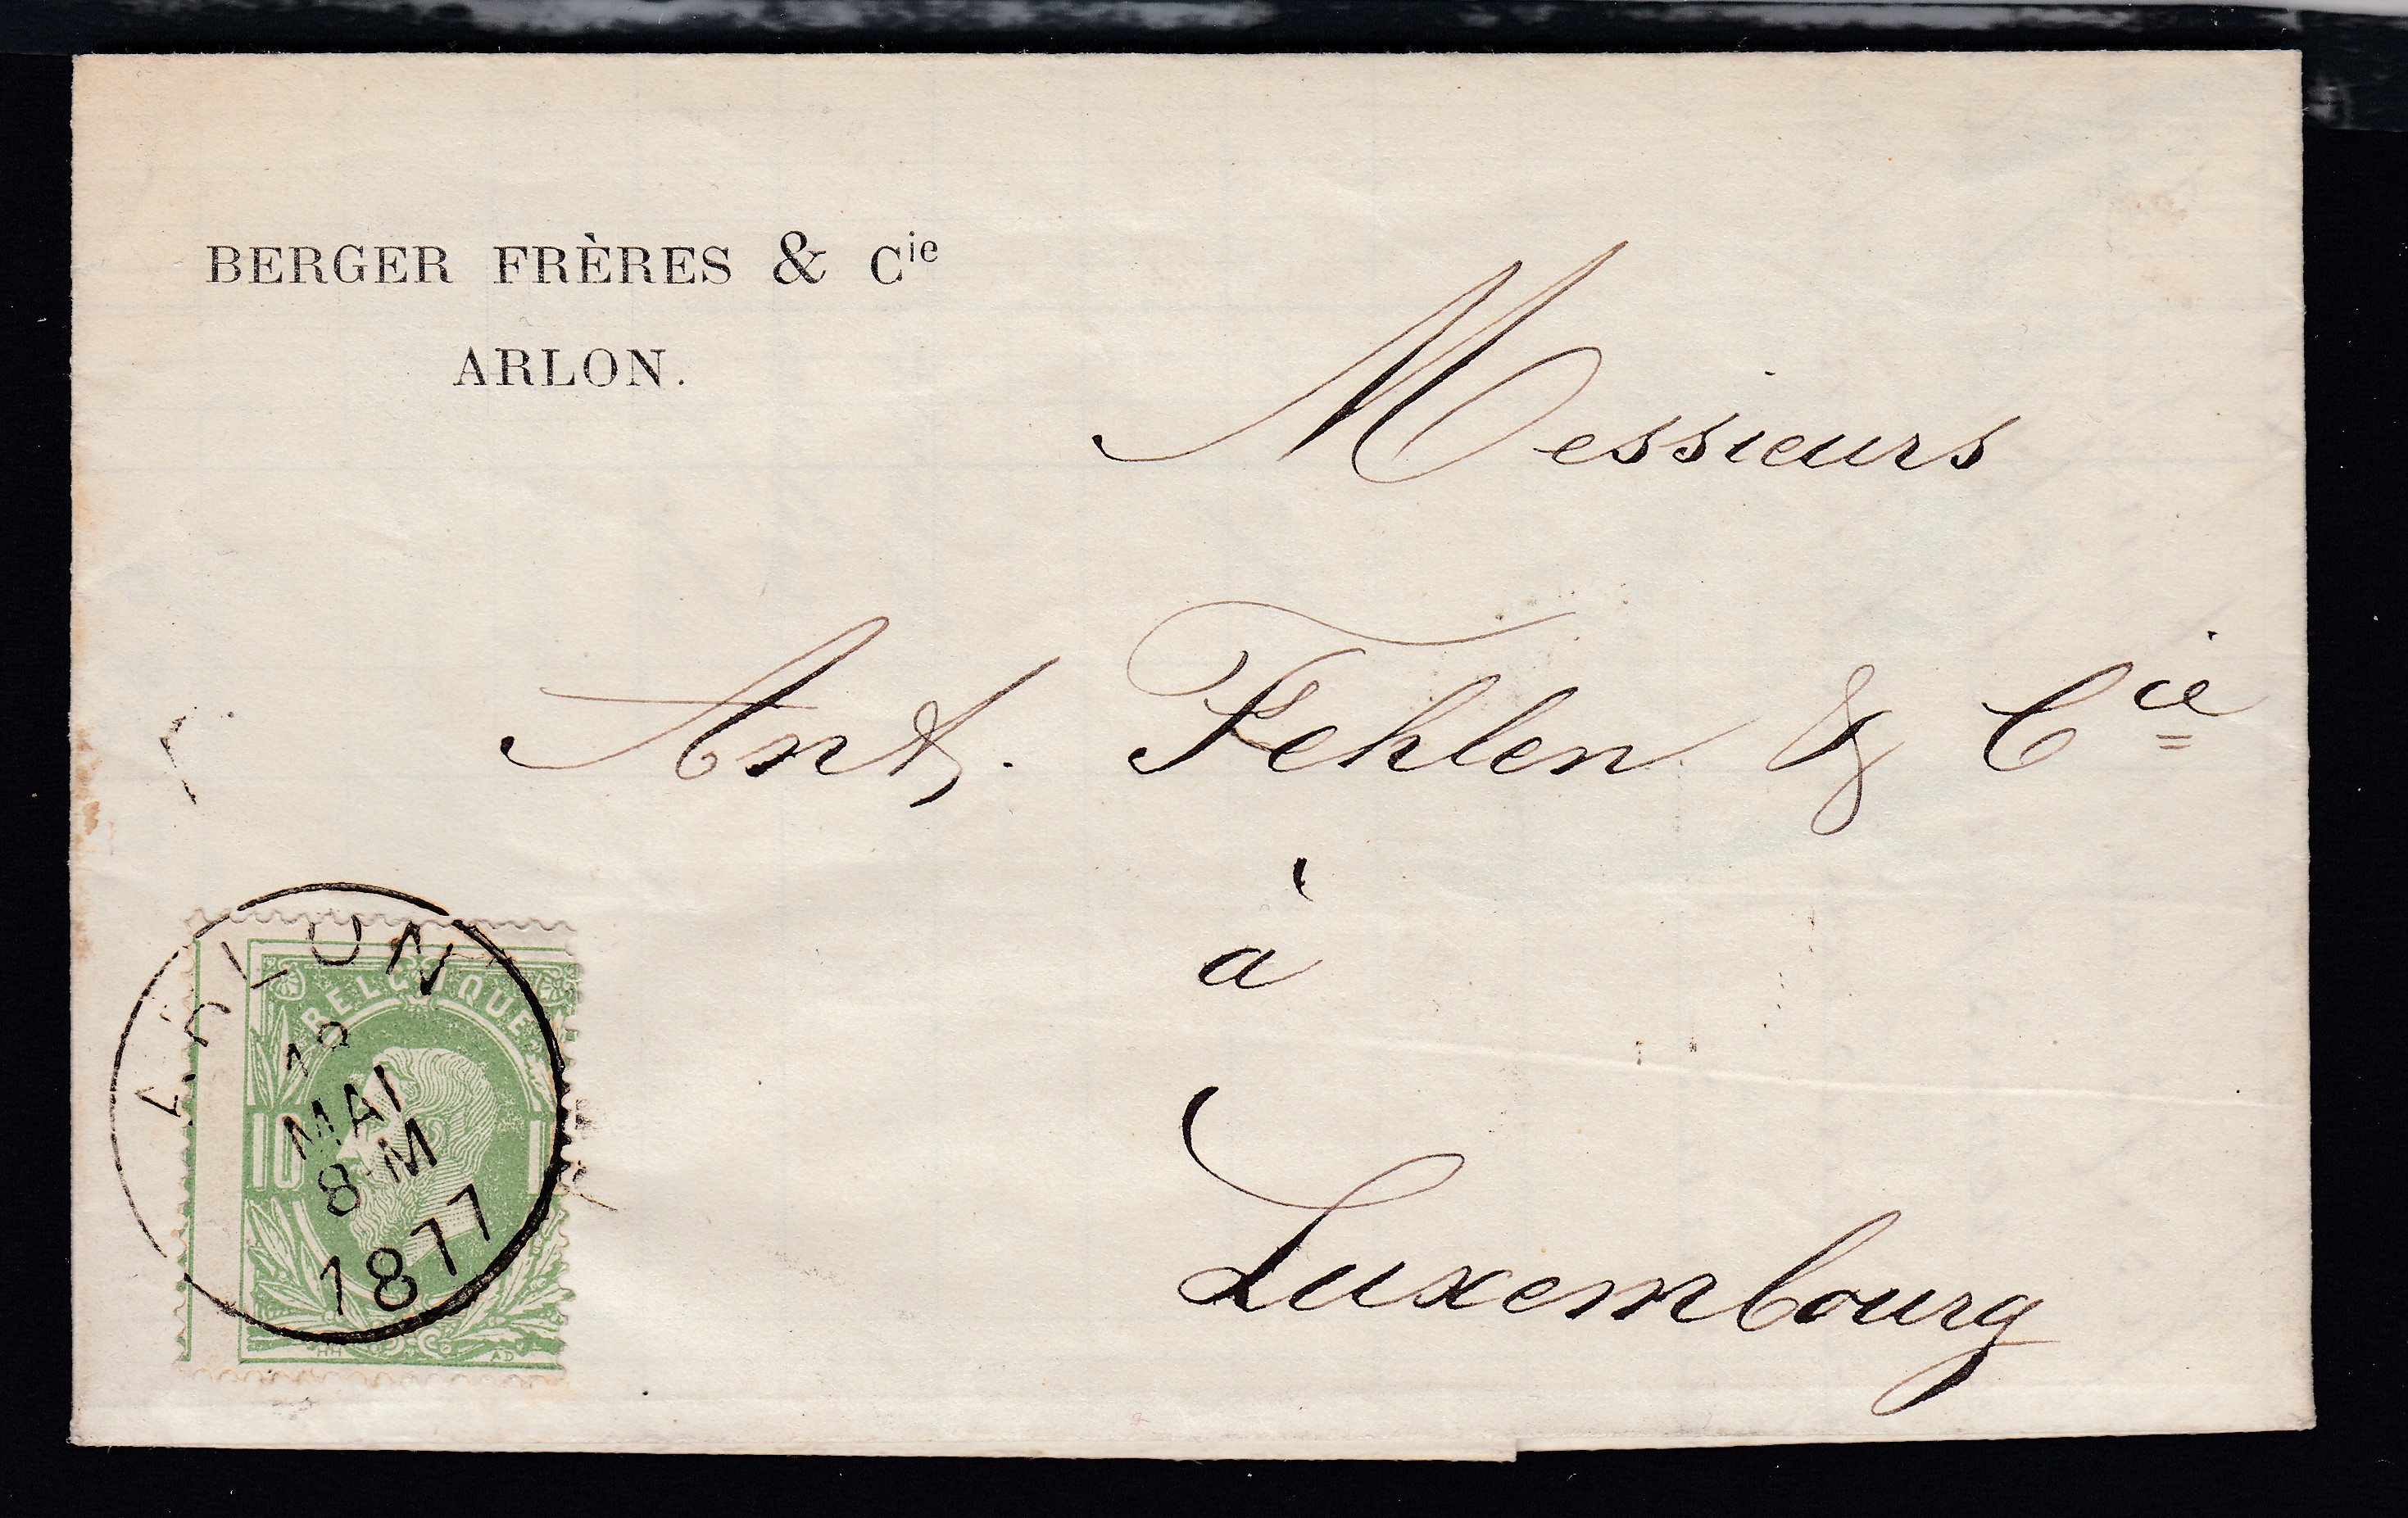 BERGER FRÈRES & Cie
ARLON.
Messieurs
Ant. Fehlen & Cie
à
Luxembourg
ARLON
MAI
8-M
1877
BELGIQUE
10
HH AD